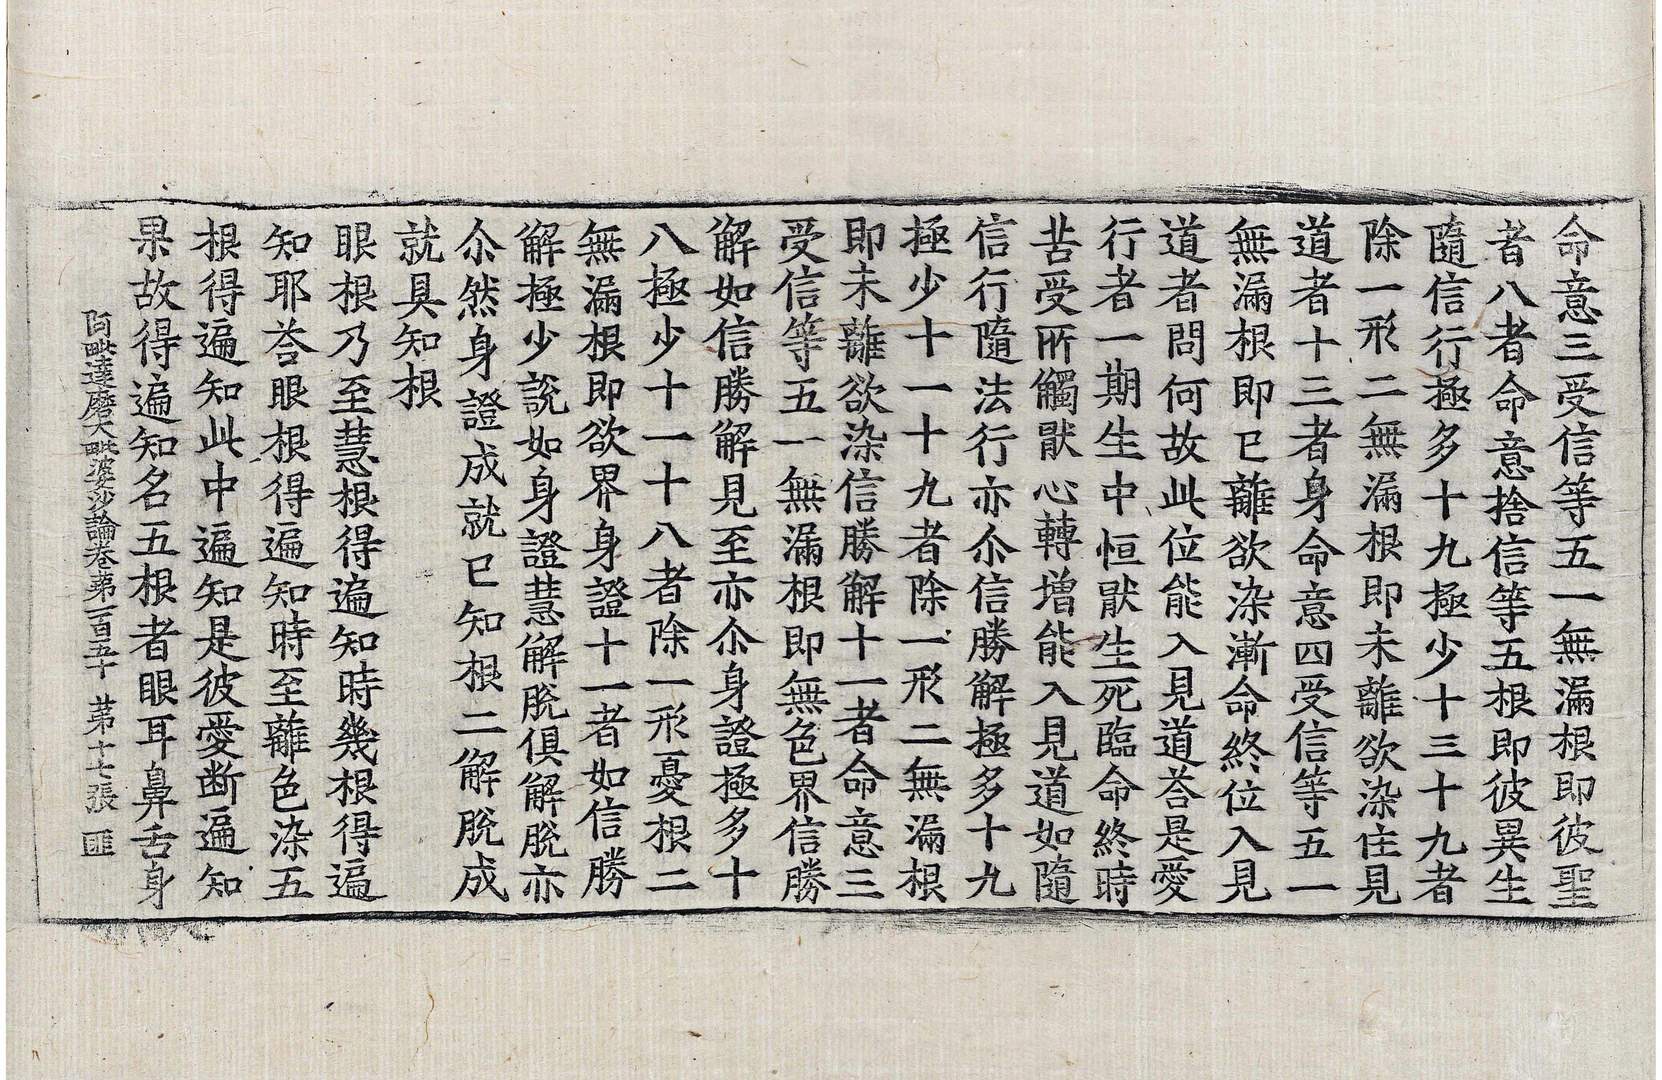 命意三受信等五一無漏根即彼聖
者八者命意捨信等五根即彼異生
隨信行極多十九極少十三十九者
除一形二無漏根即未離欲染住見
道者十三者身命意四受信等五一
無漏根即已離欲染漸命終位入見
道者問何故此位能入見道荅是愛
行者一期生中恒猒生死臨命終時
苦受所觸猒心轉增能入見道如隨
信行隨法行亦尒信勝解極多十九
極少十一十九者除一形二無漏根
即未離欲染信勝解十一者命意三
受信等五一無漏根即無色界信勝
解如信勝解見至亦尒身證極多十
八極少十一十八者除一形憂根二
無漏根即欲界身證十一者如信勝
解極少說如身證慧解脫俱解脫亦
尒然身證成就已知根二解脫成
就具知根
眼根乃至慧根得遍知時幾根得遍
知耶荅眼根得遍知時至離色染五
根得遍知此中遍知是彼愛断遍知
果故得遍知名五根者眼耳鼻舌身
阿毗達磨大毗婆沙論卷苐一百五十 苐十七張 匪